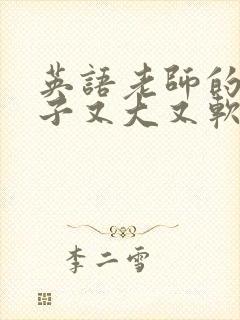 英語老師的
子又大又軟
李二雪